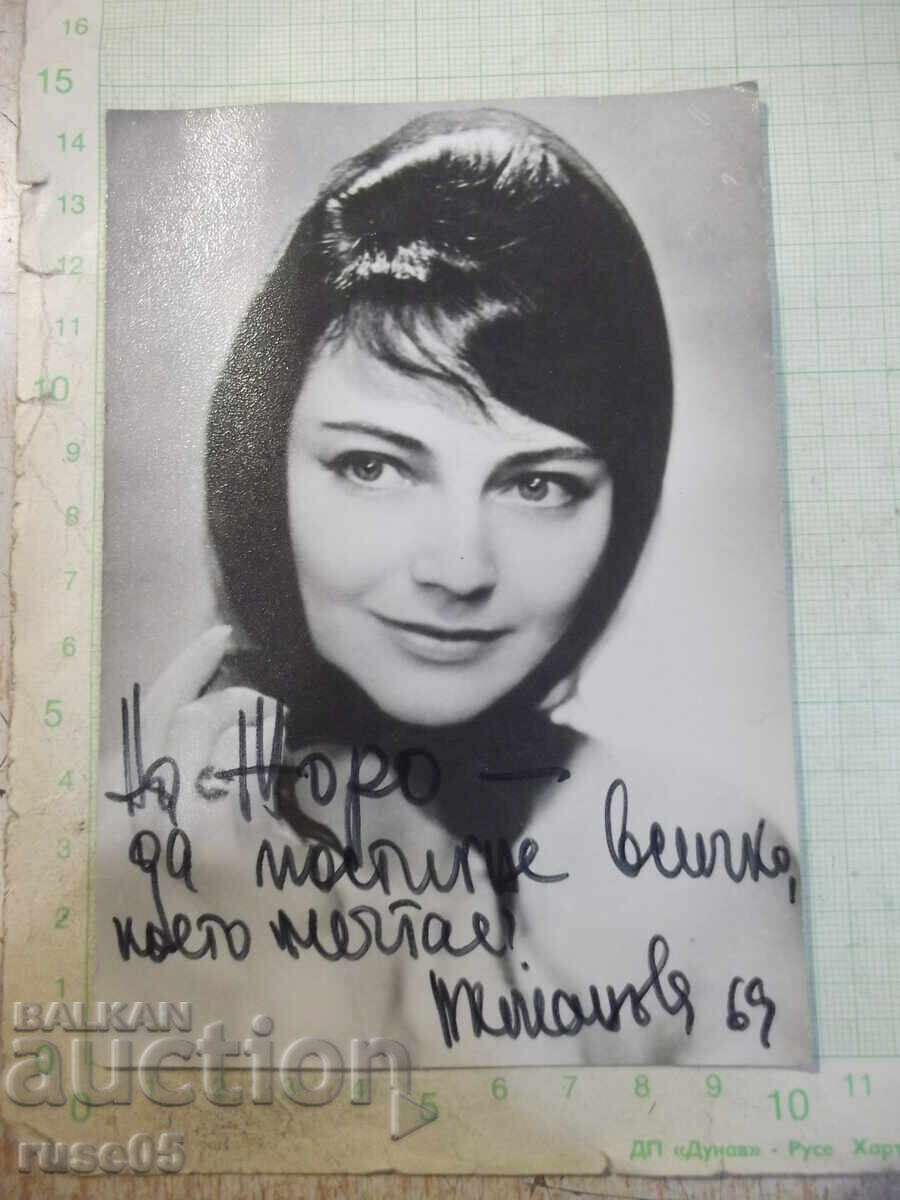 16
15
14
13
12
11
10
9
8
7
6
5
4
3
2
1
0
На Жоро —
да постигне всичко,
което мечтае!
69
BALKAN
auction
ruse05
0 1 2 3 4 5 6 7 8 9 10 11
ДП «Дунав» - Русе Харт